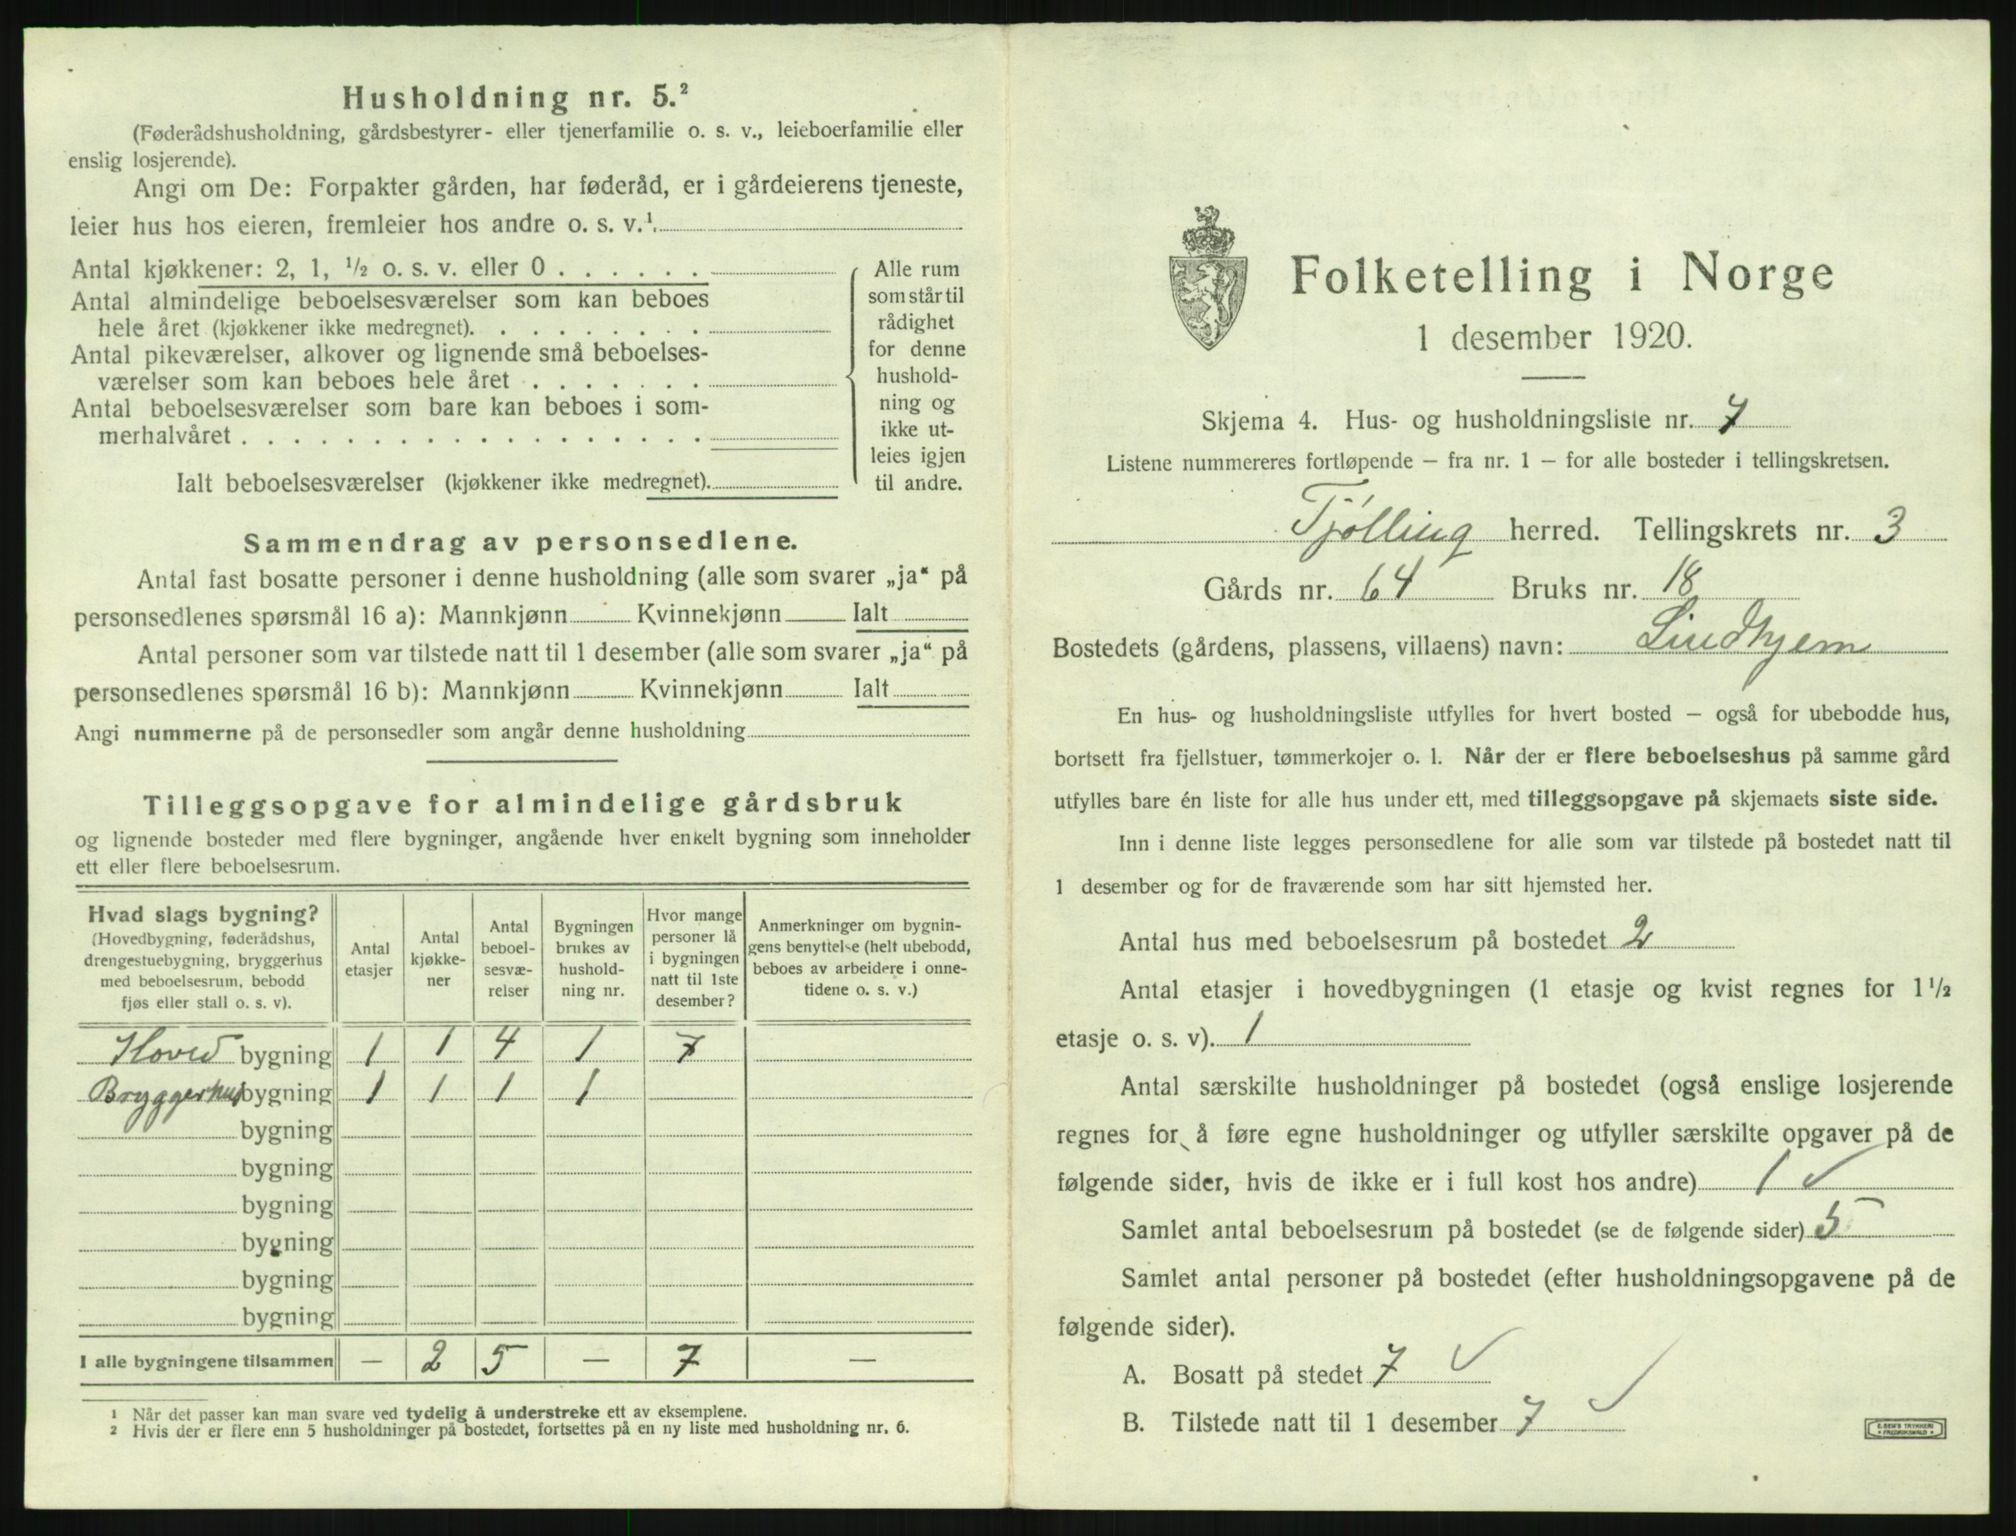 Husholdning nr. 5.²
(Føderådshusholdning, gårdsbestyrer- eller tjenerfamilie o. s. v., leieboerfamilie eller
enslig losjerende).
Angi om De: Forpakter gården, har føderåd, er i gårdeierens tjeneste,
leier hus hos eieren, fremleier hos andre o. s. v.¹.
Antal kjøkkener: 2, 1, ½ o. s. v. eller 0 . . . . . .
Antal almindelige beboelsesværelser som kan beboes
hele året (kjøkkener ikke medregnet). . . . . . . . .
Antal pikeværelser, alkover og lignende små beboelses-
værelser som kan beboes hele året . . . . . . .
Antal beboelsesværelser som bare kan beboes i som-
merhalvåret . . . . . . . . . . . . . . . . . .
Ialt beboelsesværelser (kjøkkener ikke medregnet).
Alle rum
som står til
rådighet
for denne
hushold-
ning og
ikke ut-
leies igjen
til andre.
Sammendrag av personsedlene.
Antal fast bosatte personer i denne husholdning (alle som svarer „ja“ på
personsedlenes spørsmål 16 a): Mannkjønn Kvinnekjønn Ialt
Antal personer som var tilstede natt til 1 desember (alle som svarer „ja“ på
personsedlenes spørsmål 16 b): Mannkjønn Kvinnekjønn Ialt
Angi nummerne på de personsedler som angår denne husholdning
Tilleggsopgave for almindelige gårdsbruk
og lignende bosteder med flere bygninger, angående hver enkelt bygning som inneholder
ett eller flere beboelsesrum.
Hvad slags bygning?
(Hovedbygning, føderådshus,
drengestuebygning, bryggerhus
med beboelsesrum, bebodd
fjøs eller stall o. s. v).
Antal
etasjer
Antal
kjøkke-
ner
Antal
beboel-
sesvæ-
relser
Bygningen
brukes av
hushold-
ning nr.
Hvor mange
personer lå
i bygningen
natt til 1ste
desember?
Anmerkninger om bygnin-
gens benyttelse (helt ubebodd,
beboes av arbeidere i onne-
tidene o. s. v.)
Hoved bygning 1 1 4 1 7
Bryggerhus bygning 1 1 1 1
bygning
bygning
bygning
bygning
bygning
bygning
I alle bygningene tilsammen — 2 5 — 7 —
¹ Når det passer kan man svare ved tydelig å understreke ett av eksemplene.
² Hvis der er flere enn 5 husholdninger på bostedet, fortsettes på en ny liste med husholdning nr. 6.
Folketelling i Norge
1 desember 1920.
Skjema 4. Hus- og husholdningsliste nr. 7
Listene nummereres fortløpende – fra nr. 1 – for alle bosteder i tellingskretsen.
Tjølling herred. Tellingskrets nr. 3
Gårds nr. 64 Bruks nr. 18
Bostedets (gårdens, plassens, villaens) navn: Lindhjem
En hus- og husholdningsliste utfylles for hvert bosted – også for ubebodde hus,
bortsett fra fjellstuer, tømmerkojer o. l. Når der er flere beboelseshus på samme gård
utfylles bare én liste for alle hus under ett, med tilleggsopgave på skjemaets siste side.
Inn i denne liste legges personsedlene for alle som var tilstede på bostedet natt til
1 desember og for de fraværende som har sitt hjemsted her.
Antal hus med beboelsesrum på bostedet 2
Antal etasjer i hovedbygningen (1 etasje og kvist regnes for 1½
etasje o. s. v). 1
Antal særskilte husholdninger på bostedet (også enslige losjerende
regnes for å føre egne husholdninger og utfyller særskilte opgaver på de
følgende sider, hvis de ikke er i full kost hos andre) 1 ✓
Samlet antal beboelsesrum på bostedet (se de følgende sider) 5
Samlet antal personer på bostedet (efter husholdningsopgavene på de
følgende sider).
A. Bosatt på stedet 7 ✓
B. Tilstede natt til 1 desember 7 ✓